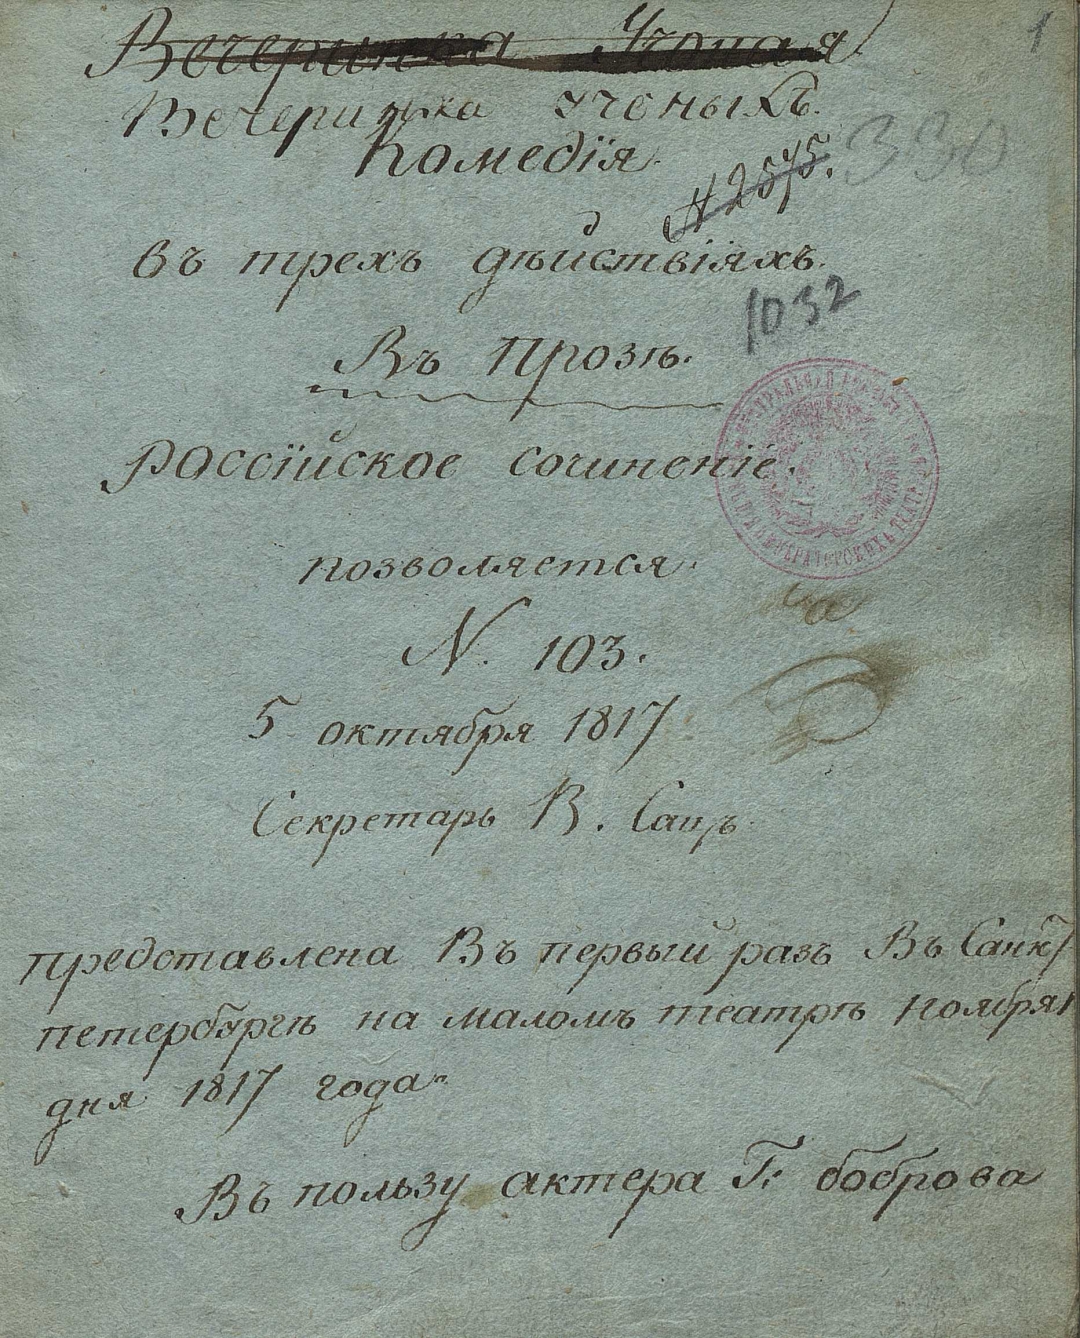 Вечеринка Ученая
1
Вечеринка ученыхъ.
Комедія
330
N 2575.
въ трехъ дѣйствіяхъ.
1032
Въ Прозѣ.
россійское сочиненіе.
позволяется.
N. 103.
5 октября 1817
Секретарь В. Соцъ
представлена Въ первый разъ Въ Санкт
петербургѣ на маломъ театрѣ ноября
дня 1817 года
Въ пользу актера Г: боброва